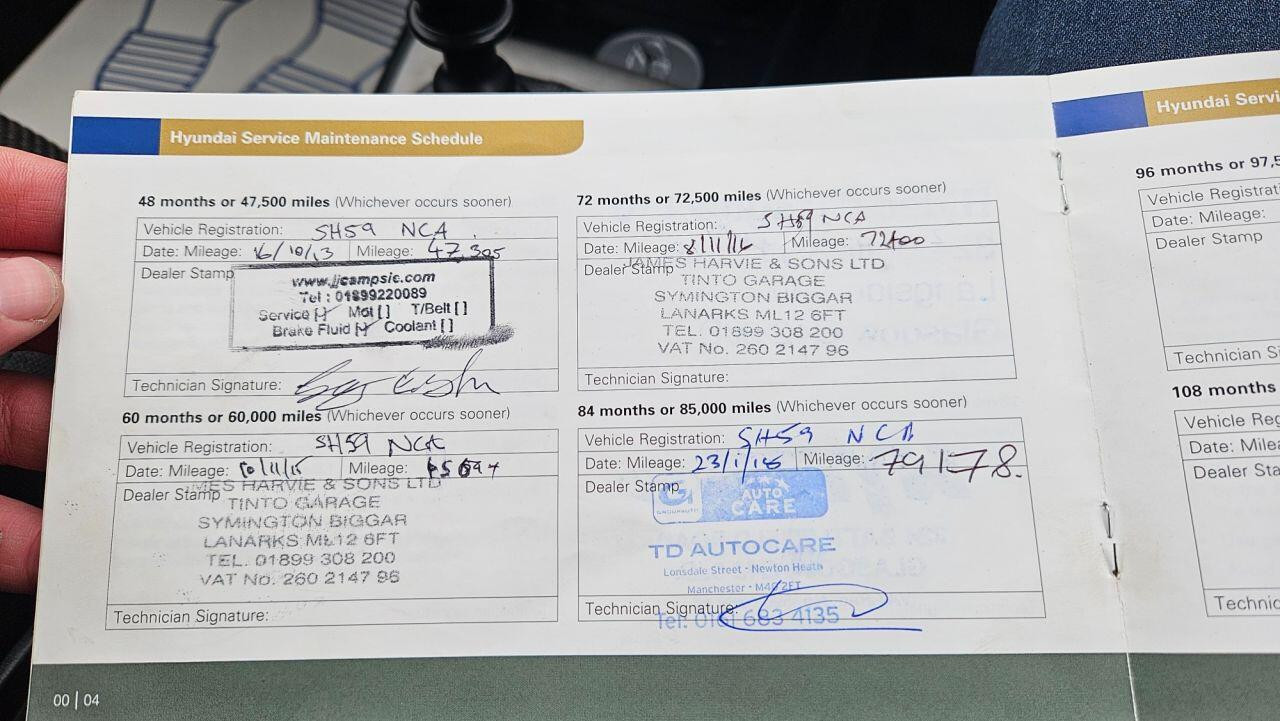 Hyundai Service Maintenance Schedule
48 months or 47,500 miles (Whichever occurs sooner)
Vehicle Registration: SH59 NCA
Date: Mileage: 16/10/13 Mileage: 47,305
Dealer Stamp
www.jjcampsie.com
Tel : 01899220089
Service [✓] Mot [ ] T/Belt [ ]
Brake Fluid [✓] Coolant [ ]
Technician Signature:
60 months or 60,000 miles (Whichever occurs sooner)
Vehicle Registration: SH59 NCA
Date: Mileage: 10/11/15 Mileage:
Dealer Stamp
MES HARVIE & SONS LTD
TINTO GARAGE
SYMINGTON BIGGAR
LANARKS ML12 6FT
TEL. 01899 308 200
VAT No. 260 2147 96
Technician Signature:
00 | 04
72 months or 72,500 miles (Whichever occurs sooner)
Vehicle Registration: SH59 NCA
Date: Mileage: 8/11/16 Mileage: 72400
Dealer Stamp
JAMES HARVIE & SONS LTD
TINTO GARAGE
SYMINGTON BIGGAR
LANARKS ML12 6FT
TEL. 01899 308 200
VAT No. 260 2147 96
Technician Signature:
84 months or 85,000 miles (Whichever occurs sooner)
Vehicle Registration: SH59 NCA
Date: Mileage: 23/1/18 Mileage: 79178.
Dealer Stamp
G GROUPAUTO AUTO
CARE
TD AUTOCARE
Lonsdale Street - Newton Heath
Manchester - M40 2FT
Technician Signature:
Tel: 0161 683 4135
Hyundai Servi
96 months or 97,5
Vehicle Registrat
Date: Mileage:
Dealer Stamp
Technician Si
108 months
Vehicle Reg
Date: Milea
Dealer Sta
Technic